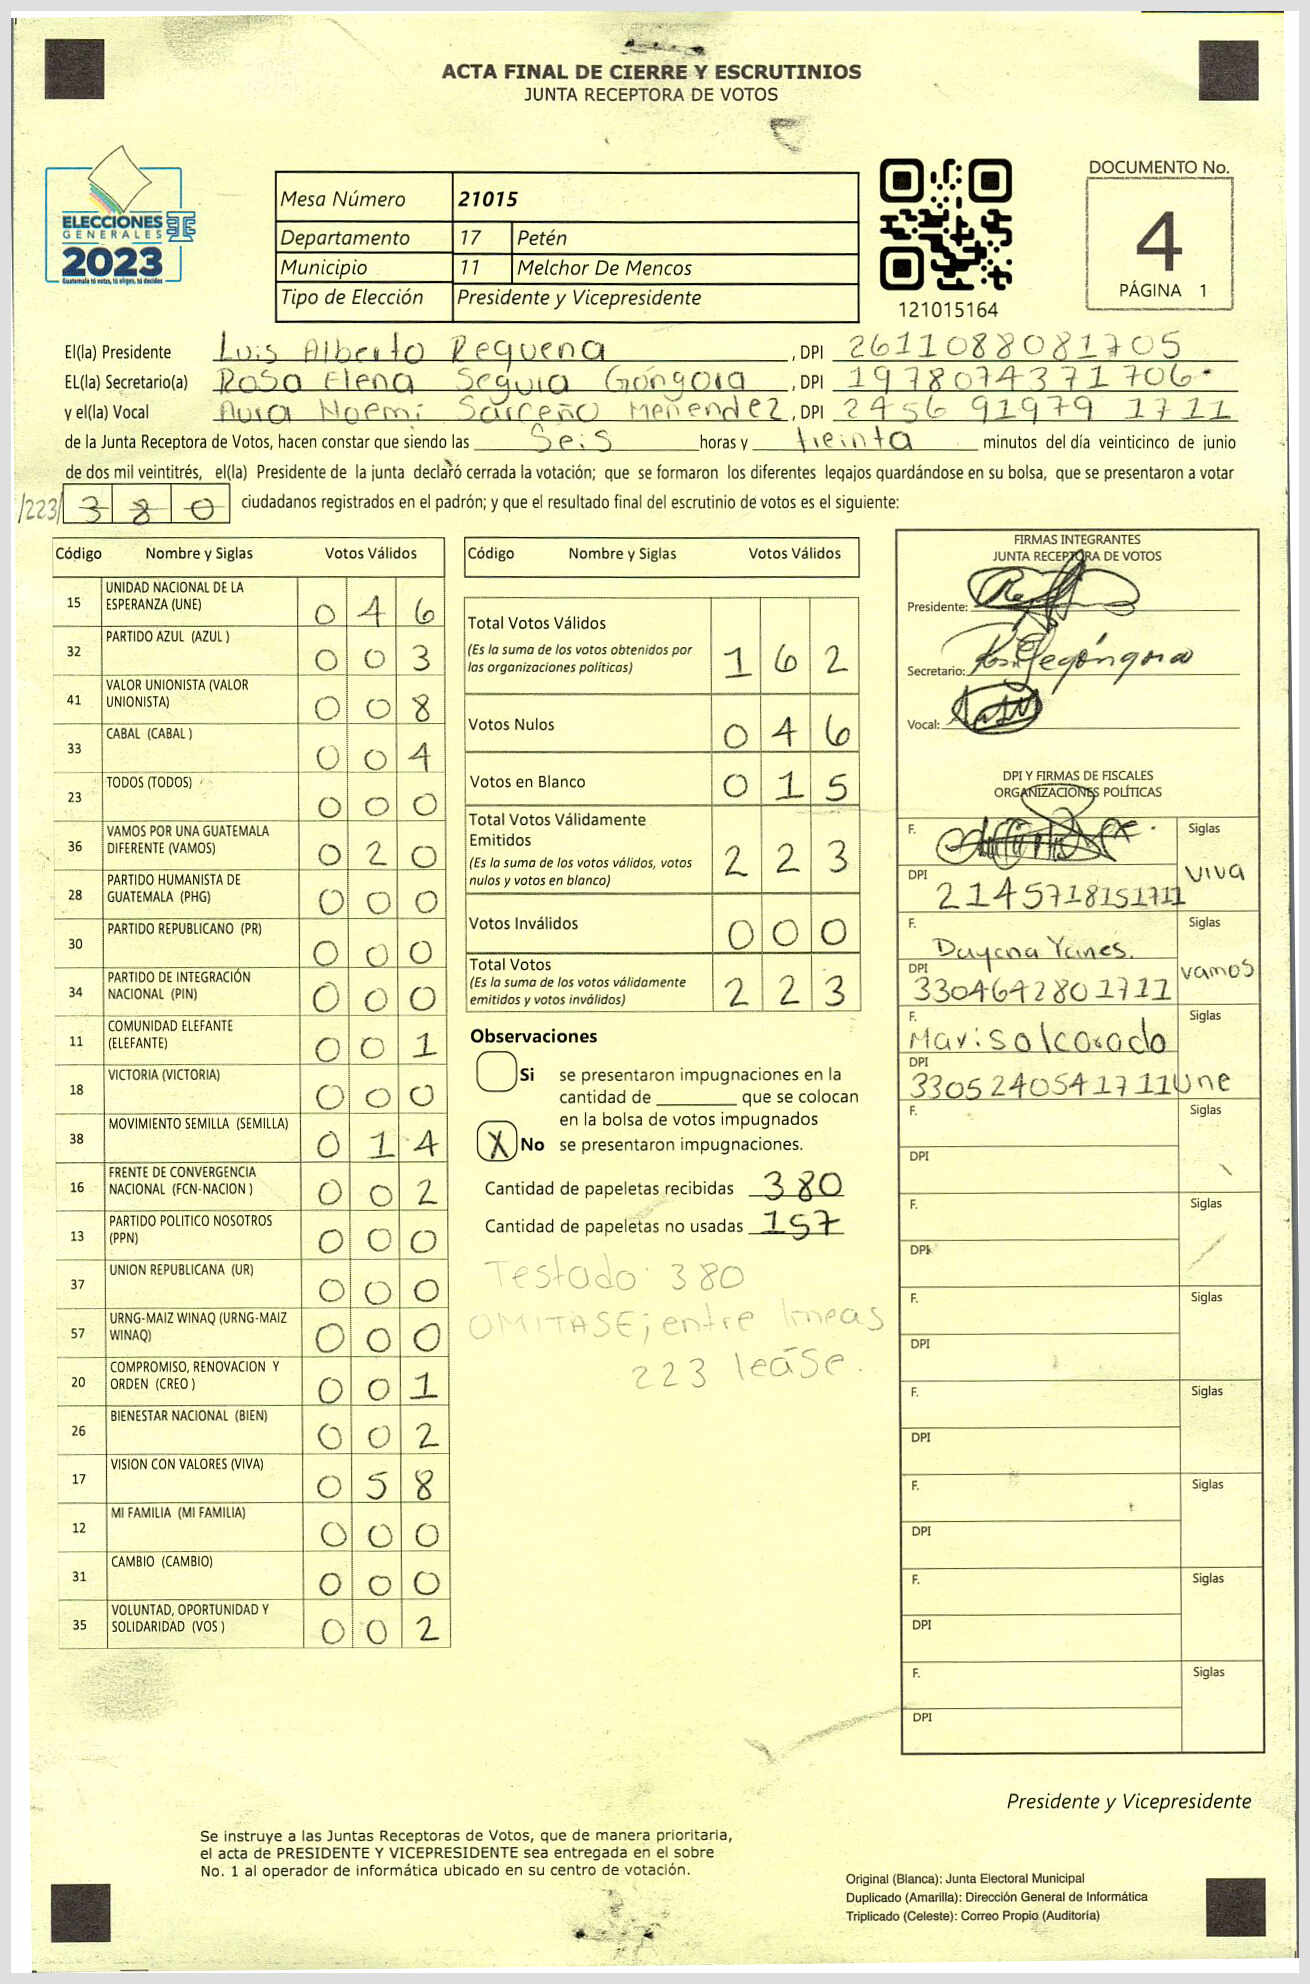 ACTA FINAL DE CIERRE Y ESCRUTINIOS
JUNTA RECEPTORA DE VOTOS
ELECCIONES
GENERALES
2023
Guatemala tú votas, tú eliges, tú decides
Mesa Número 21015
Departamento 17 Petén
Municipio 11 Melchor De Mencos
Tipo de Elección Presidente y Vicepresidente
121015164
DOCUMENTO No.
4
PÁGINA 1
El(la) Presidente Luis Alberto Requena , DPI 2611088081705
EL(la) Secretario(a) Rosa Elena Segura Góngora , DPI 1978074371706
y el(la) Vocal Aura Noemi Sarceño Menendez , DPI 2456 91979 1711
de la Junta Receptora de Votos, hacen constar que siendo las Seis horas y treinta minutos del día veinticinco de junio
de dos mil veintitrés, el(la) Presidente de la junta declaró cerrada la votación; que se formaron los diferentes legajos guardándose en su bolsa, que se presentaron a votar
/223/ 380 ciudadanos registrados en el padrón; y que el resultado final del escrutinio de votos es el siguiente:
Código Nombre y Siglas Votos Válidos
15 UNIDAD NACIONAL DE LA ESPERANZA (UNE) 0 4 6
32 PARTIDO AZUL (AZUL ) 0 0 3
41 VALOR UNIONISTA (VALOR UNIONISTA) 0 0 8
33 CABAL (CABAL ) 0 0 4
23 TODOS (TODOS) 0 0 0
36 VAMOS POR UNA GUATEMALA DIFERENTE (VAMOS) 0 2 0
28 PARTIDO HUMANISTA DE GUATEMALA (PHG) 0 0 0
30 PARTIDO REPUBLICANO (PR) 0 0 0
34 PARTIDO DE INTEGRACIÓN NACIONAL (PIN) 0 0 0
11 COMUNIDAD ELEFANTE (ELEFANTE) 0 0 1
18 VICTORIA (VICTORIA) 0 0 0
38 MOVIMIENTO SEMILLA (SEMILLA) 0 1 4
16 FRENTE DE CONVERGENCIA NACIONAL (FCN-NACION ) 0 0 2
13 PARTIDO POLITICO NOSOTROS (PPN) 0 0 0
37 UNION REPUBLICANA (UR) 0 0 0
57 URNG-MAIZ WINAQ (URNG-MAIZ WINAQ) 0 0 0
20 COMPROMISO, RENOVACION Y ORDEN (CREO ) 0 0 1
26 BIENESTAR NACIONAL (BIEN) 0 0 2
17 VISION CON VALORES (VIVA) 0 5 8
12 MI FAMILIA (MI FAMILIA) 0 0 0
31 CAMBIO (CAMBIO) 0 0 0
35 VOLUNTAD, OPORTUNIDAD Y SOLIDARIDAD (VOS ) 0 0 2
Código Nombre y Siglas Votos Válidos
Total Votos Válidos 1 6 2
(Es la suma de los votos obtenidos por
las organizaciones políticas)
Votos Nulos 0 4 6
Votos en Blanco 0 1 5
Total Votos Válidamente
Emitidos 2 2 3
(Es la suma de los votos válidos, votos
nulos y votos en blanco)
Votos Inválidos 0 0 0
Total Votos 2 2 3
(Es la suma de los votos válidamente
emitidos y votos inválidos)
Observaciones
Si se presentaron impugnaciones en la
cantidad de ________ que se colocan
en la bolsa de votos impugnados
X No se presentaron impugnaciones.
Cantidad de papeletas recibidas 380
Cantidad de papeletas no usadas 157
Testado: 380
OMITASE; entre líneas
223 leáse.
FIRMAS INTEGRANTES
JUNTA RECEPTORA DE VOTOS
Presidente:
Secretario:
Vocal:
DPI Y FIRMAS DE FISCALES
ORGANIZACIONES POLÍTICAS
F. Siglas
VIVA
DPI 2145718151711
F. Dayana Yanes. Siglas
vamos
DPI 3304642801711
F. Marisol Siglas
DPI 3305240541711 Une
F. Siglas
DPI
F. Siglas
DPI
F. Siglas
DPI
F. Siglas
DPI
F. Siglas
DPI
F. Siglas
DPI
F. Siglas
DPI
Presidente y Vicepresidente
Se instruye a las Juntas Receptoras de Votos, que de manera prioritaria,
el acta de PRESIDENTE Y VICEPRESIDENTE sea entregada en el sobre
No. 1 al operador de informática ubicado en su centro de votación.
Original (Blanca): Junta Electoral Municipal
Duplicado (Amarilla): Dirección General de Informática
Triplicado (Celeste): Correo Propio (Auditoría)